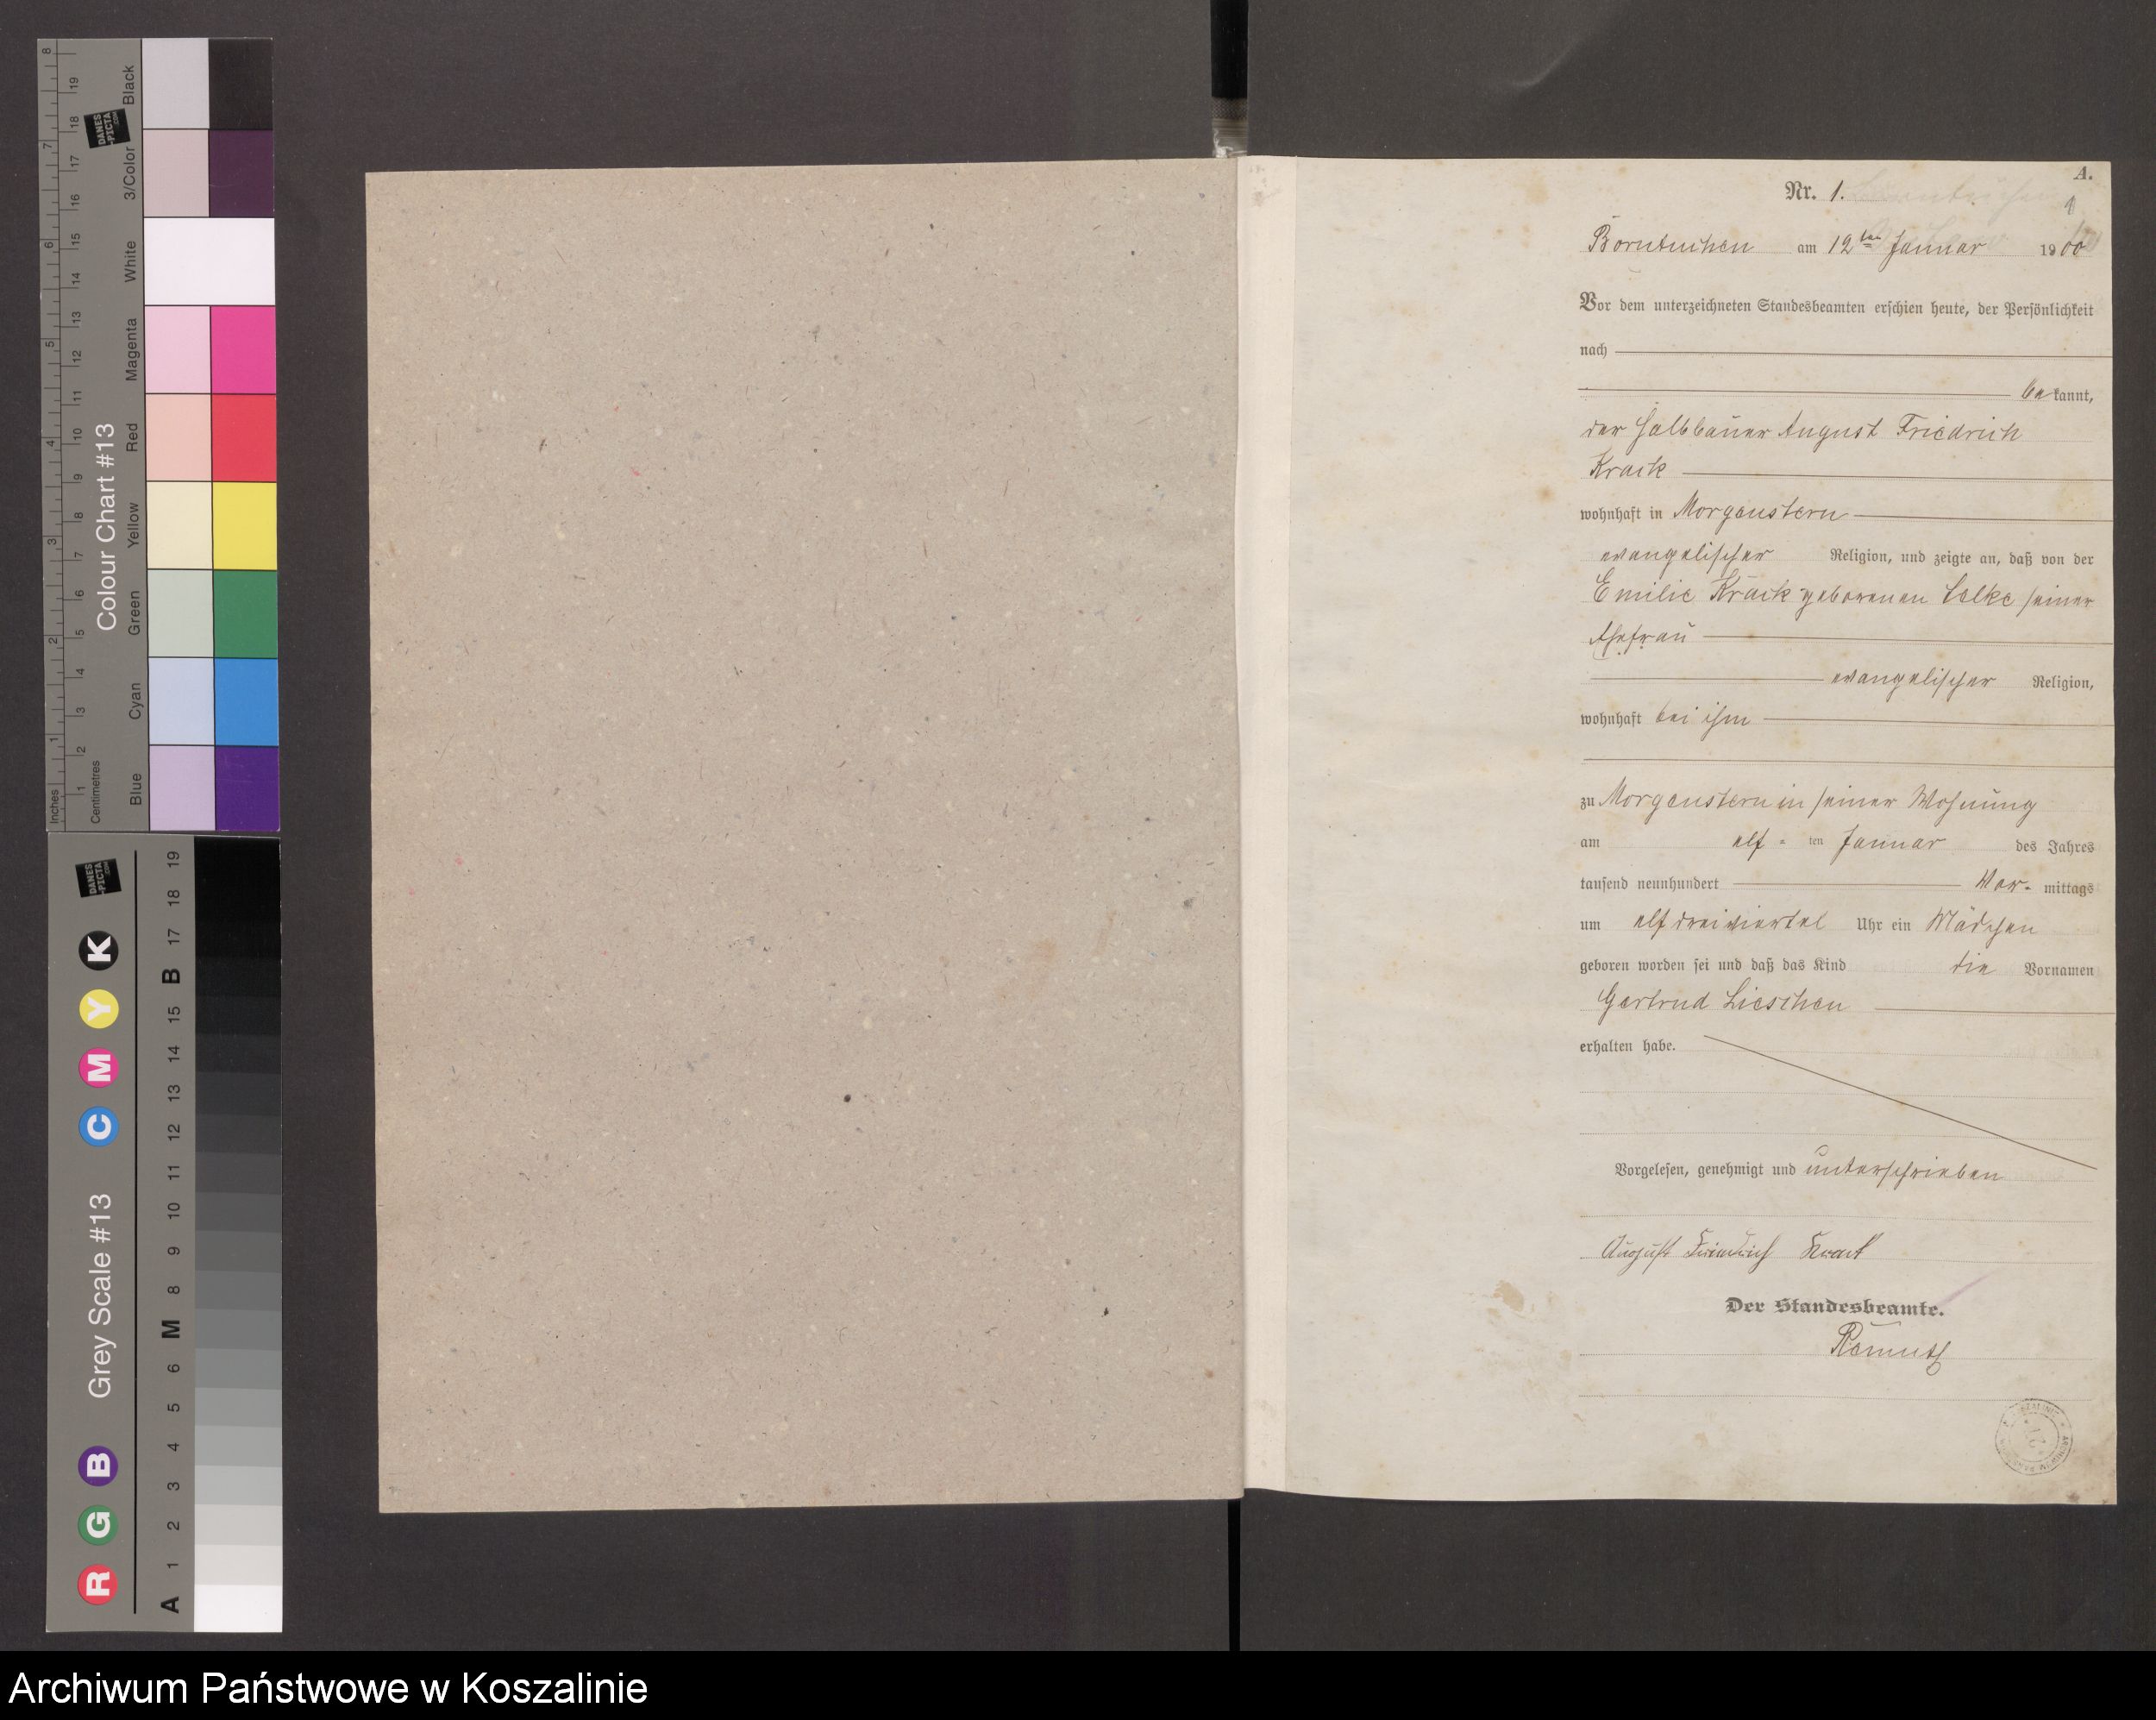 Colour Chart #13
Black
3/Color
White
Magenta
Red
Yellow
Green
Cyan
Blue
Inches
1 2 3 4 5 6 7 8
Centimetres
1 2 3 4 5 6 7 8 9 10 11 12 13 14 15 16 17 18 19
DANES
-PICTA
.COM
Grey Scale #13
R G B C M Y K
A 1 2 3 4 5 6 M 8 9 10 11 12 13 14 15 B 17 18 19
DANES
-PICTA
.COM
A.
Nr. 1.
1
Borntuchen am 12ten Januar 1900
Vor dem unterzeichneten Standesbeamten erschien heute, der Persönlichkeit
nach
bekannt,
der Halbbauer August Friedrich
Krack
wohnhaft in Morgenstern
evangelischer Religion, und zeigte an, daß von der
Emilie Krack geborenen seiner
Ehefrau
evangelischer Religion,
wohnhaft bei ihm
zu Morgenstern in seiner Wohnung
am elf = ten Januar des Jahres
tausend neunhundert Vor- mittags
um elf dreiviertel Uhr ein Mädchen
geboren worden sei und daß das Kind die Vornamen
Gertrud Lieschen
erhalten habe.
Vorgelesen, genehmigt und unterschrieben
August Friedrich Krack
Der Standesbeamte.
Archiwum Państwowe w Koszalinie